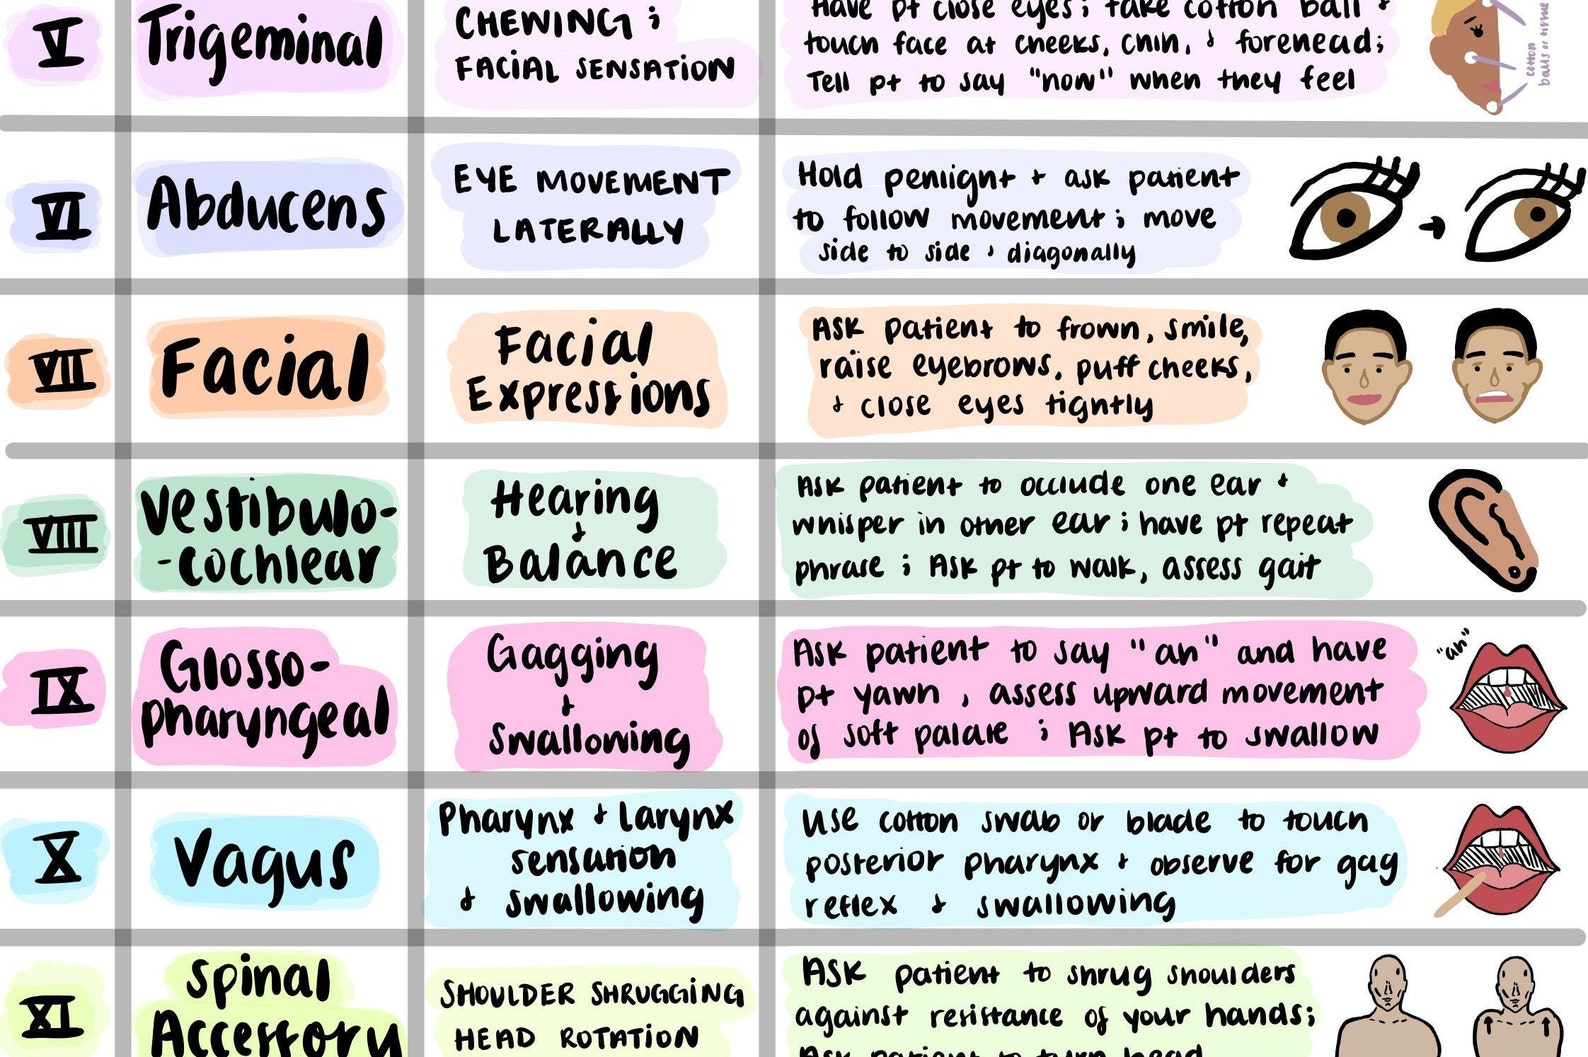 V
Trigeminal
CHEWING ;
FACIAL SENSATION
Have pt close eyes; take cotton ball +
touch face at cheeks, chin, + forehead;
Tell pt to say "now" when they feel
cotton
balls or tissue
VI
Abducens
EYE MOVEMENT
LATERALLY
Hold penlight + ask patient
to follow movement; move
side to side + diagonally
VII
Facial
Facial
Expressions
ASK patient to frown, smile,
raise eyebrows, puff cheeks,
+ close eyes tightly
VIII
Vestibulo-
-cochlear
Hearing
+
Balance
ASK patient to occlude one ear +
whisper in other ear; have pt repeat
phrase; ASK pt to walk, assess gait
IX
Glosso-
pharyngeal
Gagging
+
Swallowing
ASK patient to say "ah" and have
pt yawn, assess upward movement
of soft palate; ASK pt to swallow
"ah"
X
Vagus
Pharynx + Larynx
sensation
+ swallowing
Use cotton swab or blade to touch
posterior pharynx + observe for gag
reflex + swallowing
XI
Spinal
Accessory
SHOULDER SHRUGGING
HEAD ROTATION
ASK patient to shrug shoulders
against resistance of your hands;
Ask patient to turn head